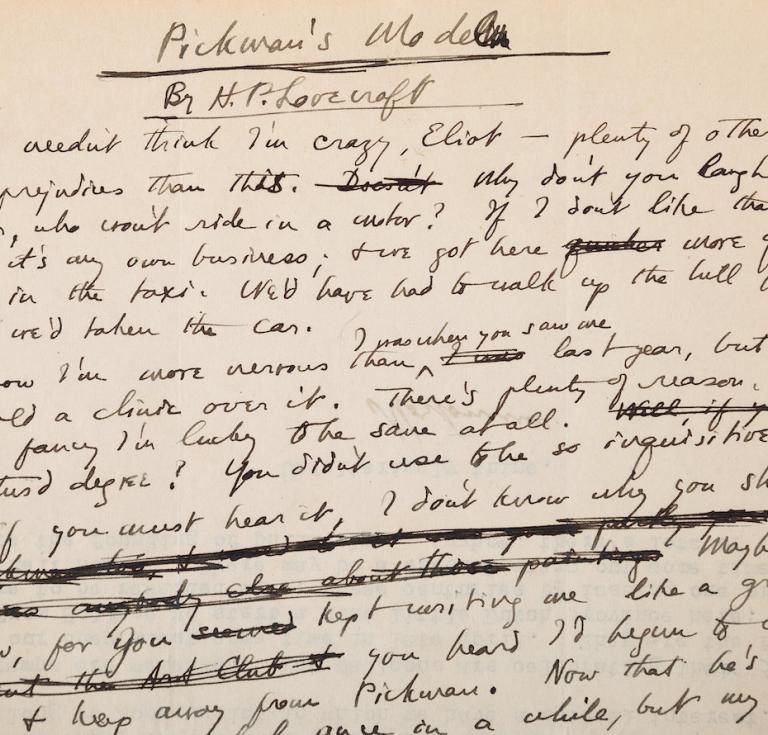 Pickman's Model
By H. P. Lovecraft
needn't think I'm crazy, Eliot — plenty of othe
prejudices than this. Doesn't Why don't you laugh
, who won't ride in a motor? If I don't like tha
it's my own business; & we got here quicker more q
in the taxi. We'd have had to walk up the hill
we'd taken the car.
I was when you saw me
ow I'm more nervous than I was last year, but
ld a clinic over it. There's plenty of reason,
fancy I'm lucky to be sane at all. Well, if y
third degree? You didn't use to be so inquisitive
f you must hear it, I don't know why you sh
anybody else about those paintings Mayb
, for you seemed kept writing me like a gr
the Art Club & you heard I'd begun to c
& keep away from Pickman. Now that he's
once in a while, but my